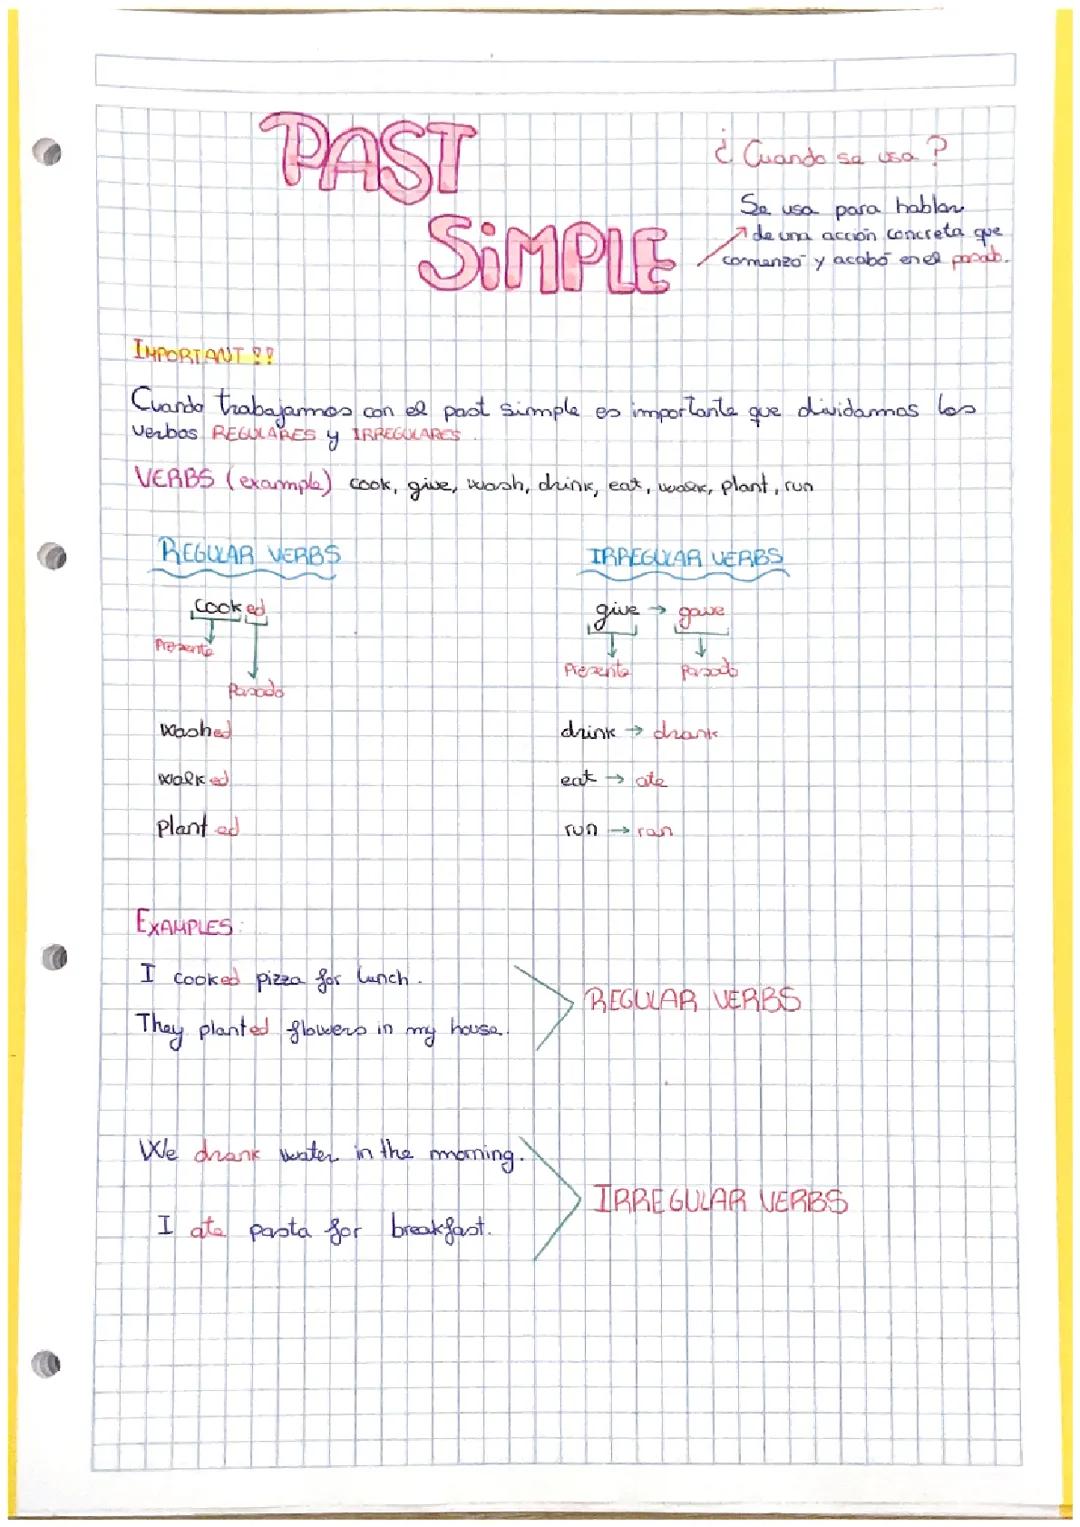 PAST
SiMPLE
¿Cuando se usa?
Se usa para hablar
de una acción concreta que
comenzó y acabó en el pasado.
IMPORTANT!!
Cuando trabajamos con el past simple es importante que dividamos los
verbos REGULARES y IRREGULARES.
VERBS (example) cook, give, wash, drink, eat, walk, plant, run
REGULAR VERBS
IRREGULAR VERBS
cooked
give → gave
Presente
Pasado
Presente
Pasado
washed
drink → drank
walked
eat → ate
planted
run → ran
EXAMPLES:
I cooked pizza for lunch.
They planted flowers in my house.
REGULAR VERBS
We drank water in the morning.
I ate pasta for breakfast.
IRREGULAR VERBS